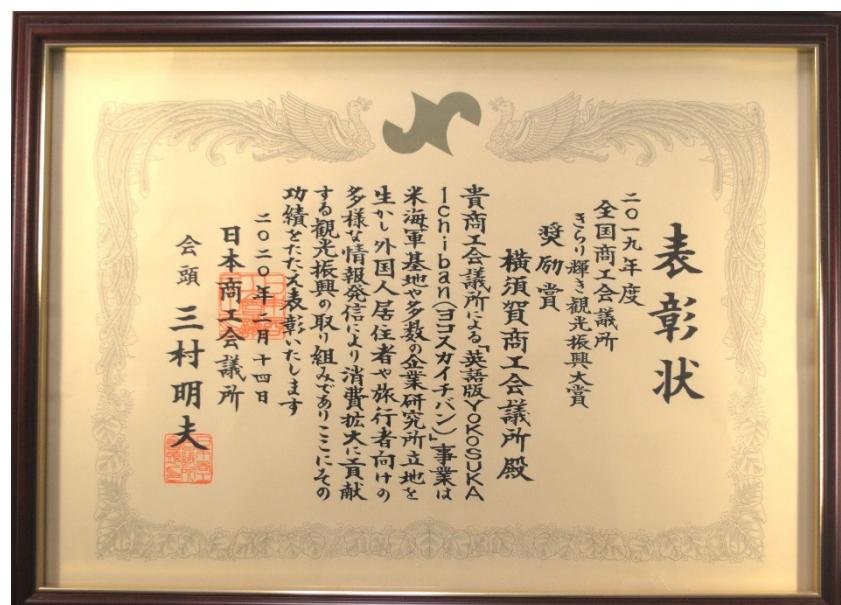 表彰状
二〇一九年度
全国商工会議所
きらり輝き観光振興大賞
奨励賞
横須賀商工会議所殿
貴商工会議所による「英語版YOKOSUKA
Ichiban(ヨコスカイチバン)」事業は
米海軍基地や多数の企業研究所立地を
生かし外国人居住者や旅行者向けの
多様な情報発信により消費拡大に貢献
する観光振興の取り組みでありここにその
功績をたたえ表彰いたします
二〇二〇年二月十四日
日本商工会議所
会頭 三村明夫